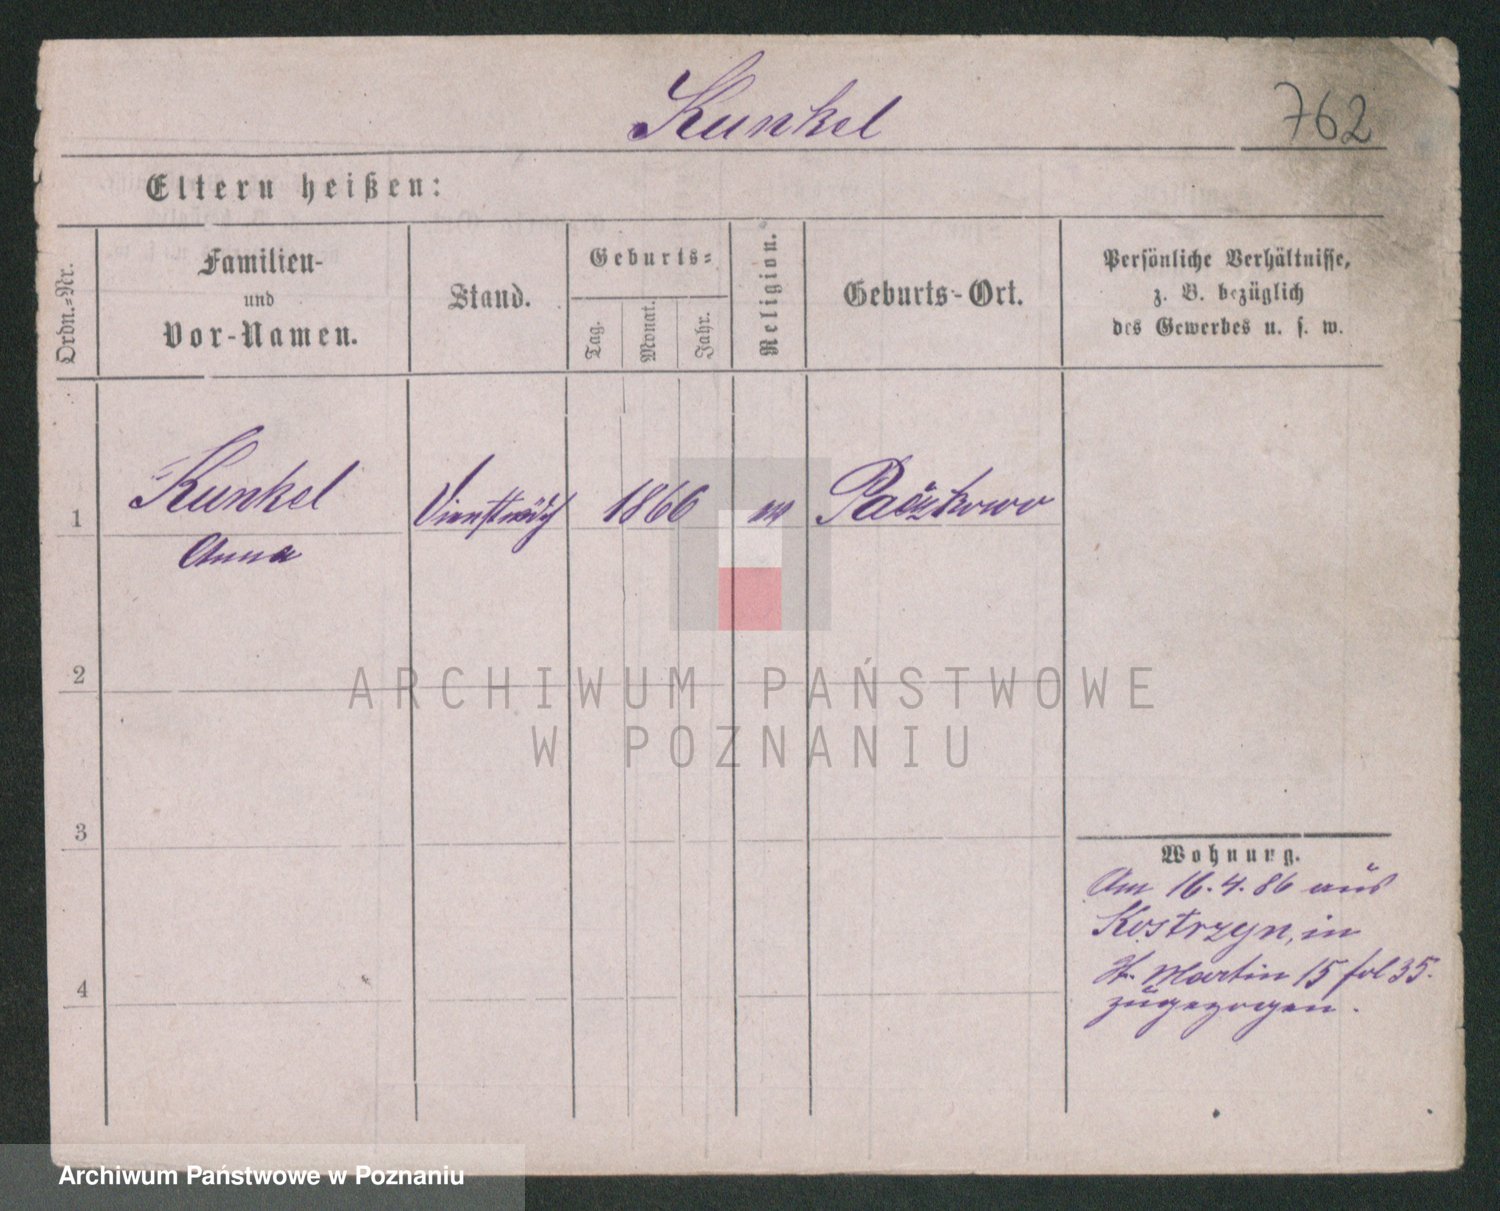 Kunkel
762
Eltern heißen:
Ordn.=Nr.
Familien-
und
Vor-Namen.
Stand.
Geburts=
Tag.
Monat.
Jahr.
Religion.
Geburts-Ort.
Persönliche Verhältnisse,
z. B. bezüglich
des Gewerbes u. s. w.
1
Kunkel
Anna
1866
Paczkowo
2
3
4
Wohnung.
Am 16.4.86 aus
Kostrzyn, in
St. Martin 15 fol 35.
zugezogen.
ARCHIWUM PAŃSTWOWE
W POZNANIU
Archiwum Państwowe w Poznaniu